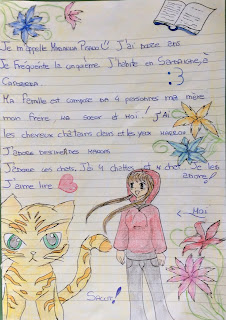 Je m'appelle Prado J'ai douze ans.
Je fréquente la cinquième. J'habite en Sardaigne, à
Ma Famille est compose da 4 personnes ma mère,
mon Frère, ma sœur et moi! J'Ai
les cheveux châtains clairs et les yeux marron
J'adore dessiner des mangas
J'adore les chats. J'ai 4 chattes et 1 chat. Je les
adore!
J'aime lire
← Moi
Salut!